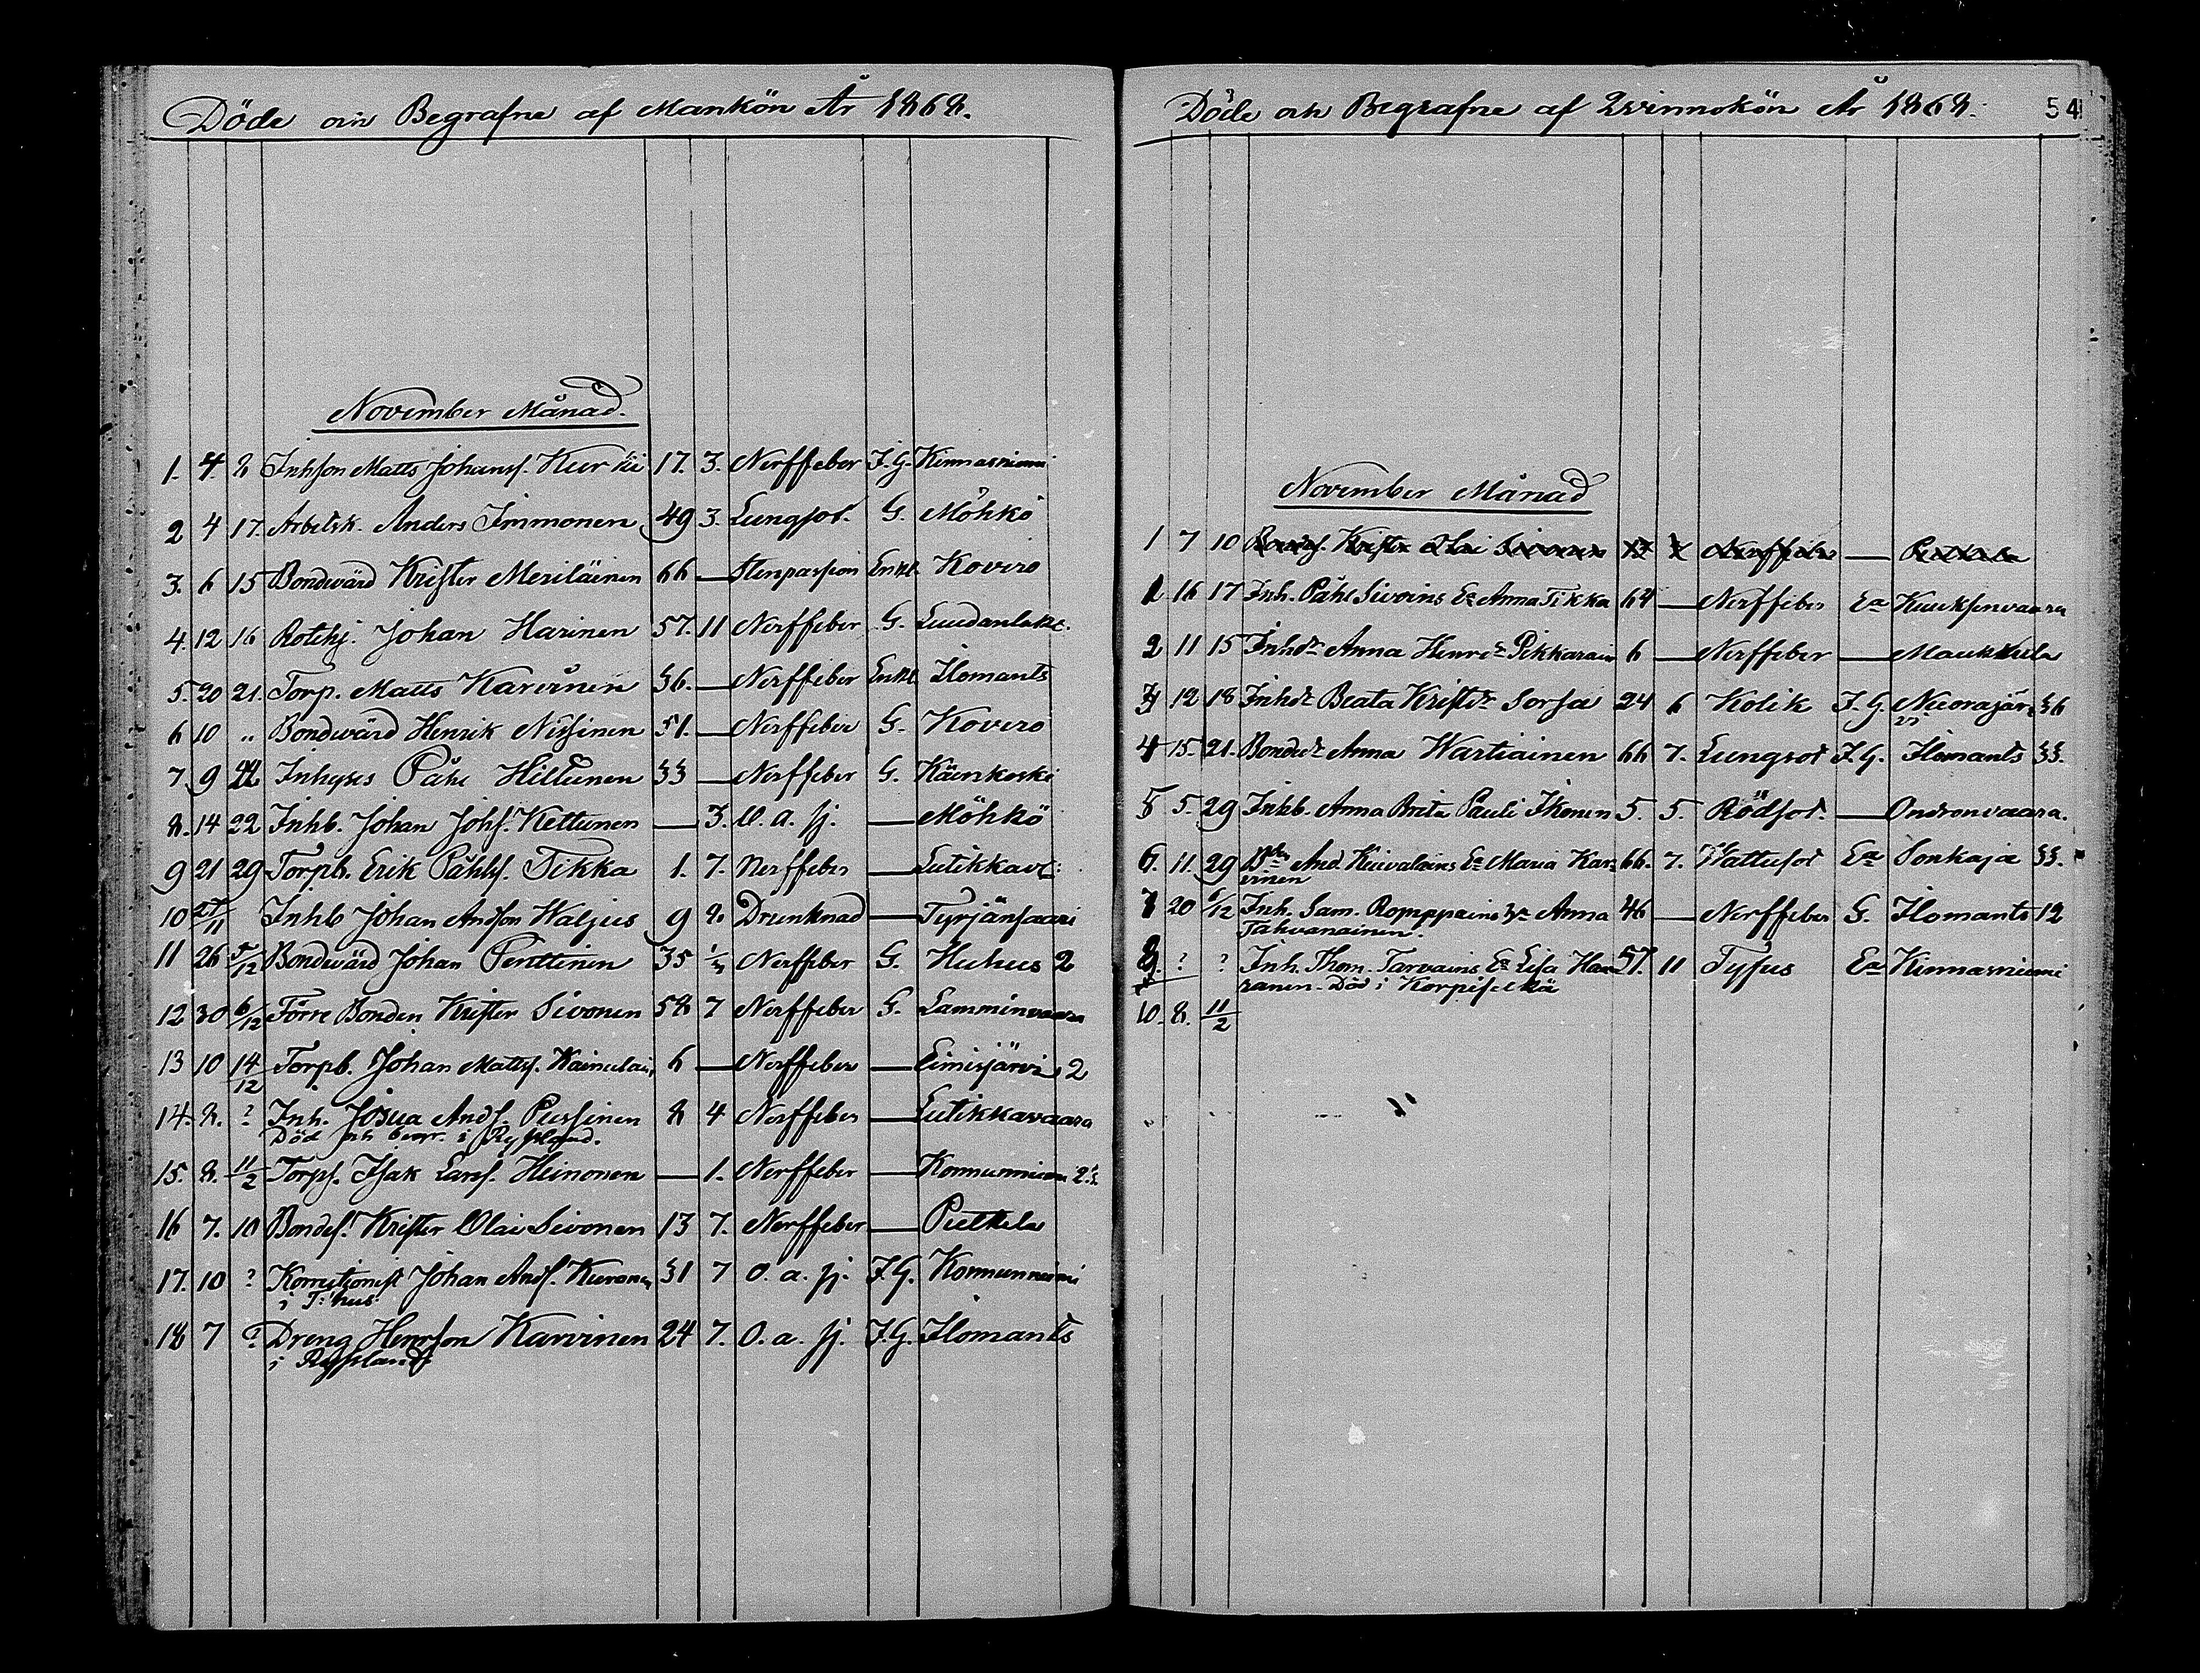 Döde och Begrafne af Mankön År 1868.
November Månad.
1. 4. 8 Inhson Matts Johanss. Kurki 17. 3. Nerffeber I. G. Kinnasniemi
2 4 17. Arbetsk. Anders Immonen 49 3. Lungsot. G. Möhkö
3. 6 15 Bondewärd Krister Meriläinen 66 — Stenpassion Enkl. Kovero
4. 12 16 Rotehj. Johan Harinen 57. 11 Nerffeber G. Luudanlaks.
5. 20 21. Torp. Matts Karvinen 36. — Nerffeber Enkl. Ilomants
6 10 " Bondewärd Henrik Nissinen 51. — Nerffeber G. Kovero
7 9 22 Inhyses Påhl Hiltunen 33 — Nerffeber G. Käenkoski
8. 14 22 Inhb. Johan Johs. Kettunen — 3. O. a. sj. — Möhkö
9 21 29 Torpb. Erik Påhls. Tikka 1. 7. Nerffeber — Lutikkav:
10 27/11 Inhb Johan Andson Waljus 9 8. Drunknad — Tyrjänsaari
11 26 5/12 Bondewärd Johan Penttinen 35 Nerffeber G. Huhus 2
12 30 6/12 Förre Bonden Krister Sivonen 58 7 Nerffeber G. Lamminvaara
13 10 14/12 Torpb. Johan Matts. Kainulai, 6 — Nerffeber — Eimisjärvi 2
14. 8. ? Inh. Josua Ands. Pussinen 8 4 Nerffeber — Lutikkavaara
Död och begr. i Ryssland.
15. 8. 11/2 Torps. Isak Larss. Heinonen — 1. Nerffeber — Konnunniemi
16 7. 10 Bondes. Krister Olai Sivonen 13 7. Nerffeber — Putkela
17. 10 ? Korrectionist Johan Ands. Kuronen 31 7 O. a. sj. I. G. Konnunniemi
i T: hus
18 7 ? Dreng Henrson Karvinen 24 7. O. a. sj. I. G. Ilomants
i Ryssland
Döde och Begrafne af Qvinnokön År 1868. 54
November Månad
1 7 10 Bondes. Krister Olai Sivonen 13 7 Nerffeber — Putkela
1 16 17 Inh. Påhl Sivoins Ea Anna Tikka 64 — Nerffeber Ea Kuuksenvaara
2 11 15 Inhdr Anna Henrdr Pikkarain 6 — Nerffeber — Maukkula
3 12 18 Inhdr Beata Kristdr Sorsa 24 6 Kolik I. G. Nuorajärvi 36
4 15. 21. Bondedr Anna Wartiainen 66 7. Lungsot I. G. Ilomants 33.
5 5. 29 Inhb. Anna Brita Pauli Ikonen 5. 5. Rödsot. — Ondronvaara.
6. 11. 29 And. Kuivalains Ea Maria Kar= 66. 7. Wattusot Ea Sonkaja 33.
vinen
7 20 6/12 Inh. Sam. Romppains Anna 46 — Nerffeber G. Ilomants 12
Tahvanainen.
? ? Inh. Thom. Tarvains Ea Lisa 57. 11 Tyfus Ea Kinnasniemi
ranen. Död i Korpiselkä
10. 8. 11/2